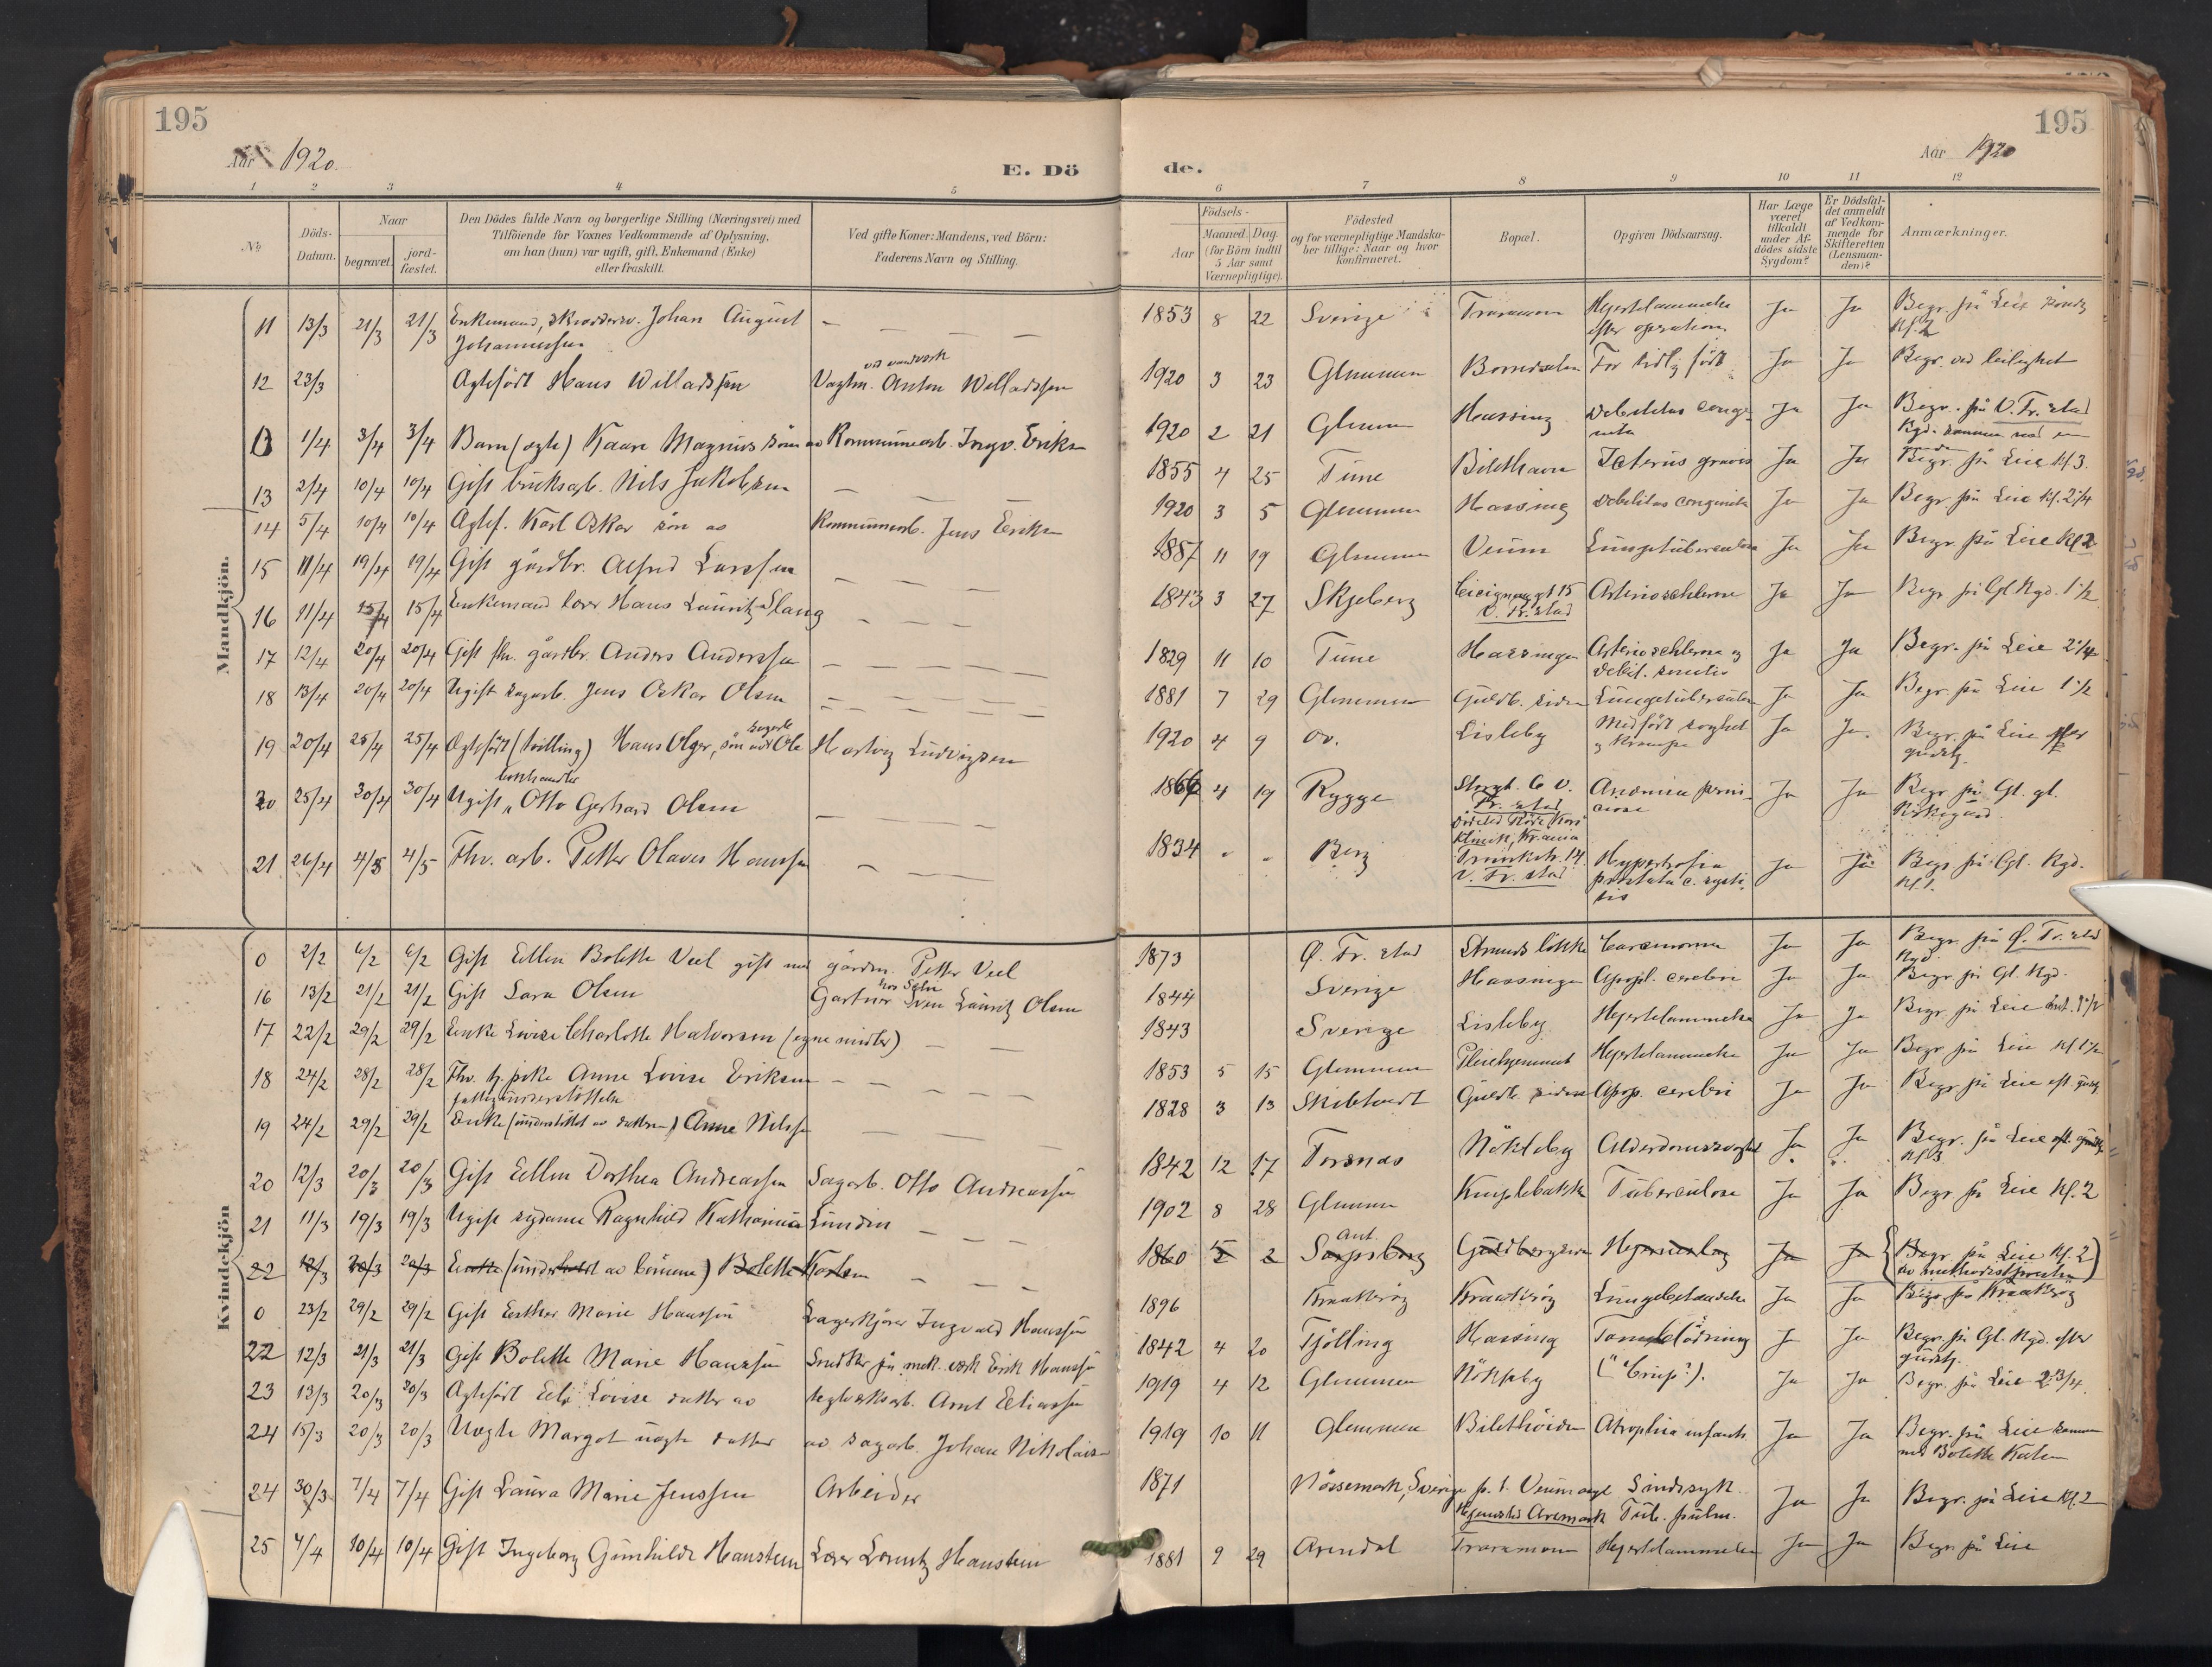 195
Aar 1920.
E. Dö
1 2 3 4 5
No
Döds-
Datum.
Naar
begravet.
jord-
fæstet.
Den Dödes fulde Navn og borgerlige Stilling (Næringsvei) med
Tilföiende for Voxnes Vedkommende af Oplysning,
om han (hun) var ugift, gift, Enkemand (Enke)
eller fraskilt.
Ved gifte Koner: Mandens, ved Börn:
Faderens Navn og Stilling.
Mandkjön.
11 13/3 21/3 21/3 Enkemand, Johan August — — — —
Johannessen
ved
12 23/3 Ægtefödt Hans Willadssen Anton Willadssen
13 1/4 3/4 3/4 Barn (ægte) Kaare Magnus sön av Kommunearb. Ingv. Eriksen
13 2/4 10/4 10/4 Gift bruksarb. Nils Jakobsen — — — —
14 5/4 10/4 10/4 Ægtef. Karl Oskar sön av Kommunearb. Jens Eriksen
15 11/4 19/4 19/4 Gift gårdbr. Alfred Larssen — — — —
16 11/4 15/4 15/4 Enkemand Hans Lauritz Slang — — — —
17 12/4 20/4 20/4 Gift fhv. gårdbr. Anders Anderssen — — — —
18 13/4 20/4 20/4 Ugift sagarb. Jens Oskar Olsen — — — —
sagarb.
19 20/4 25/4 25/4 Ægtefödt (tvilling) Hans Olger, sön av Ole Hartvig Ludvigsen
bokhandler
20 25/4 30/4 30/4 Ugift Otto Gerhard Olsen — — — —
21 26/4 4/5 4/5 Fhv. arb. Petter Olaves Hanssen — — — —
Kvindekjön
0 2/2 6/2 6/2 Gift Ellen Bolette Veel gift med gårdm. Petter Veel
16 13/2 21/2 21/2 Gift Sara Olsen Gartner Sven Lauritz Olsen
17 22/2 29/2 29/2 Enke Lovise Charlotte Halvorsen (egne midler) — —
18 24/2 28/2 28/2 Fhv. tj. pike Anne Lovise Eriksen — — — —
fattigunderstöttelse
19 24/2 29/2 29/2 Enke (understöttet av datteren) Anne Nilssen — — — —
20 12/3 20/3 20/3 Gift Ellen Dorthea Andreassen Sagarb. Otto Andreassen
21 11/3 19/3 19/3 Ugift sydame Ragnhild Katharina Lundin — — —
22 12/3 20/3 20/3 Enke (underholdt av börnene) Bolette Karlsen — — —
0 23/2 29/2 29/2 Gift Esther Marie Hanssen Lagerkjörer Ingvald Hanssen
22 12/3 21/3 21/3 Gift Bolette Marie Hanssen Snedker på mek. verk Erik Hanssen
23 13/3 20/3 20/3 Ægtefödt Lovise datter av teglverksarb. Arnt Eliassen
24 15/3 20/3 20/3 Uægte Margot uægte datter av sagarb. Johan Nikolaisen
24 30/3 7/4 7/4 Gift Laura Marie Jenssen Arbeider
25 4/4 10/4 10/4 Gift Ingeborg Gunhilde Hanstein Lærer Lorentz Hanstein
195
Aar 1920
de.
6 7 8 9 10 11 12
Födsels-
Aar
Maaned. Dag.
(for Börn indtil
5 Aar samt
Værnepligtige).
Födested
og for værnepligtige Mandska-
ber tillige: Naar og hvor
konfirmeret.
Bopæl.
Opgiven Dödsaarsag.
Har Læge
været
tilkaldt
under Af-
dödes sidste
Sygdom?
Er Dödsfal-
det anmeldt
af Vedkom-
mende for
Skifteretten
(Lensman-
den)?
Anmærkninger.
1853 8 22 Sverige Traramoen Hjertelammelse Ja Ja Begr. på Leie
efter operation kl. 2
1920 3 23 Glemmen For tidlig födt Ja Ja Begr. ved leilighet
1920 2 21 Glemmen Hassing Debilitas conge- Ja Ja Begr. på V. Fr.stad
nita Kgd. sammen med en
1855 4 25 Tune Bilethaven Icterus gravis Ja Ja Begr. på Leie kl. 3.
1920 3 5 Glemmen Hassing Debilitas congenita Ja Ja Begr. på Leie kl. 2 1/4
1887 11 19 Glemmen Veum Lungetuberculose Ja Ja Begr. på Leie kl. 2
1843 3 27 Skjeberg Cicignongt 15 Arteriosclerose Ja Ja Begr. på Gl. Kgd. 1 1/2
V. Fr.stad
1829 11 10 Tune Hassingen Arteriosclerose og Ja Ja Begr. på Leie 2 1/4
debil. senilis
1881 7 29 Glemmen Guldb. siden Lungetuberculose Ja Ja Begr. på Leie 1 1/2
1920 4 9 do. Lisleby Medfödt svaghet Ja Ja. Begr. på Leie efter
og Krampe gudstj.
1866 4 19 Rygge Storgt. 6 V. Anæmia perni- Ja Ja Begr. på Gl. gl.
Fr.stad ciosa Kirkegård.
Röde Kors
Klinik, Kr.ania
1834 " " Berg 14 Hypertrofia Ja Ja Begr. på Gl. Kgd.
V. Fr.stad prostata c. cysti- kl. 1.
tis
1873 Ö. Fr.stad Smedslökka Carcinoma Ja Ja Begr. på Ö. Fr.stad
Kgd.
1844 Sverige Hassingen Apopl. cerebri Ja Ja Begr. på Gl. Kgd.
1843 Sverige Lisleby Hjertelammelse Ja Ja Begr. på Leie
1853 5 15 Glemmen Pleiehjemmet Hjertelammelse Ja Ja Begr. på Leie kl. 1 1/2
1828 3 13 Skibtvedt Guldb. siden Apop. cerebri Ja Ja Begr. på Leie eft. gudstj.
1842 12 17 Torsnæs Nökleby Alderdomssvaghet Ja Ja Begr. på Leie eft. gudstj.
kl. 3
1902 8 28 Glemmen Kniplebakken Tuberculose Ja Ja Begr. på Leie kl. 2
ant.
1860 2 Sarpsborg Guldbergsiden Hjerneslag Ja Ja (Begr. på Leie kl. 2
av methodistpresten)
1896 Kraakeröy Kraakeröy Lungebetændelse Ja Ja Begr. på Kraakeröy
1842 4 20 Tjölling Hassing Ja Ja Begr. på Gl. Kgd. efter
gudstj.
1919 4 12 Glemmen Nökleby ("Crup"?). Ja Ja Begr. på Leie 2 3/4.
1919 10 11 Glemmen Bilethöiden Atrophia infant. Ja Ja Begr. på Leie sammen
med Bolette
1871 Nössemark, Sverige p. t. Veum asyl Sindssyk Ja Ja Begr. på Leie kl. 2
Hjemsted Aremark Tub. pulm.
1881 9 29 Arendal Traramoen Hjertelammelse Ja Ja Begr. på Leie